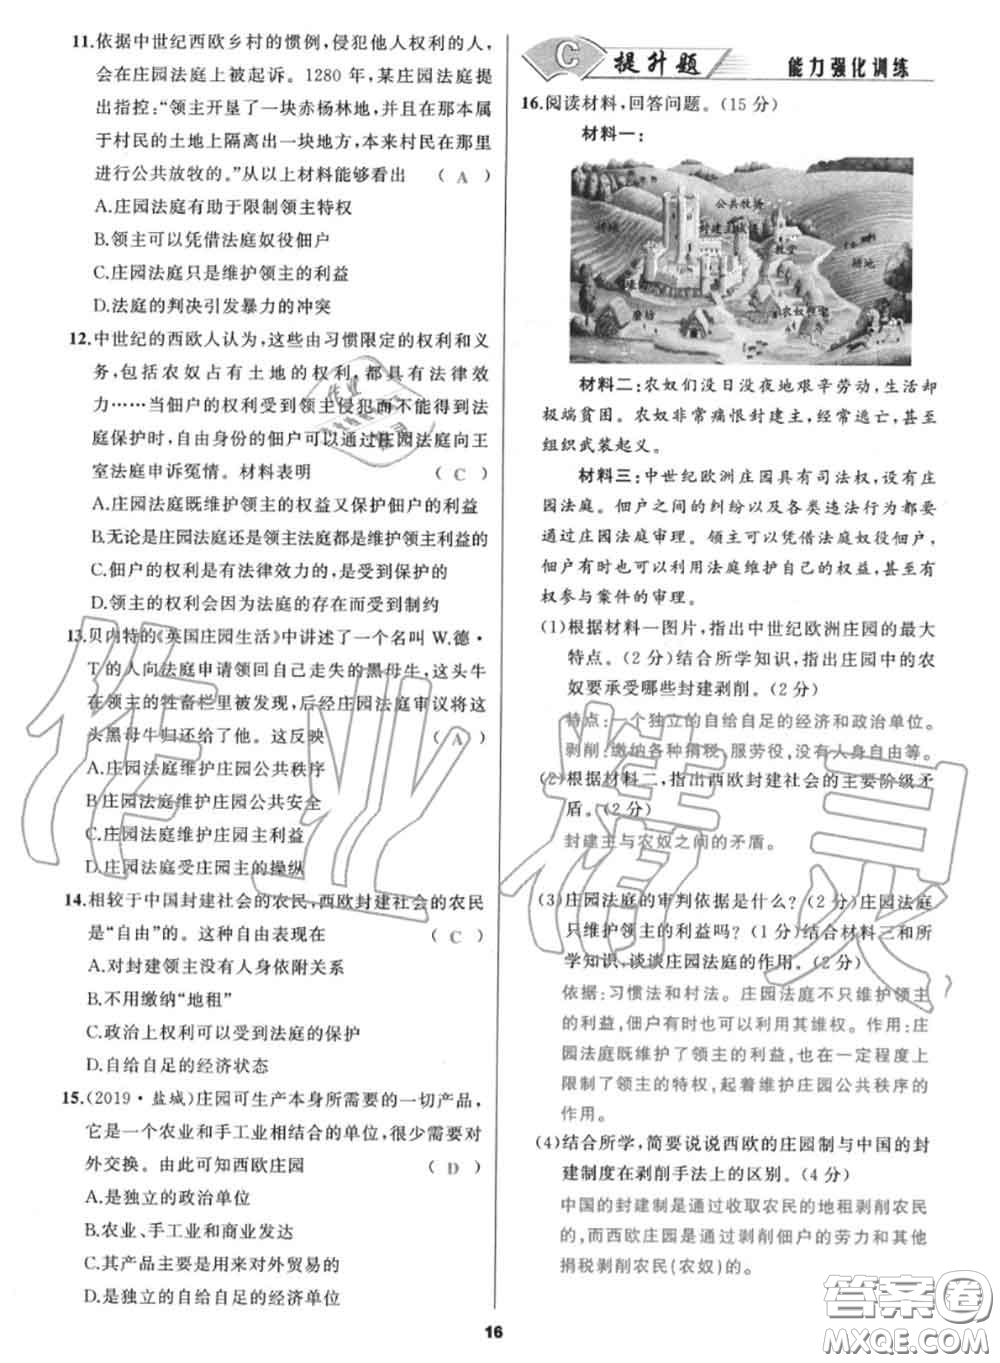 11.依据中世纪西欧乡村的惯例,侵犯他人权利的人,
会在庄园法庭上被起诉。1280年,某庄园法庭提
出指控:“领主开垦了一块赤杨林地,并在那本属
于村民的土地上隔离出一块地方,本来村民在那里
进行公共放牧的。”从以上材料能够看出 ( A )
A.庄园法庭有助于限制领主特权
B.领主可以凭借法庭奴役佃户
C.庄园法庭只是维护领主的利益
D.法庭的判决引发暴力的冲突
12.中世纪的西欧人认为,这些由习惯限定的权利和义
务,包括农奴占有土地的权利,都具有法律效
力……当佃户的权利受到领主侵犯而不能得到法
庭保护时,自由身份的佃户可以通过庄园法庭向王
室法庭申诉冤情。材料表明 ( C )
A.庄园法庭既维护领主的权益又保护佃户的利益
B.无论是庄园法庭还是领主法庭都是维护领主利益的
C.佃户的权利是有法律效力的,是受到保护的
D.领主的权利会因为法庭的存在而受到制约
13.贝内特的《英国庄园生活》中讲述了一个名叫W.德·
T的人向法庭申请领回自己走失的黑母牛,这头牛
在领主的牲畜栏里被发现,后经庄园法庭审议将这
头黑母牛归还给了他。这反映 ( A )
A.庄园法庭维护庄园公共秩序
B.庄园法庭维护庄园公共安全
C.庄园法庭维护庄园主利益
D.庄园法庭受庄园主的操纵
14.相较于中国封建社会的农民,西欧封建社会的农民
是“自由”的。这种自由表现在 ( C )
A.对封建领主没有人身依附关系
B.不用缴纳“地租”
C.政治上权利可以受到法庭的保护
D.自给自足的经济状态
15.(2019·盐城)庄园可生产本身所需要的一切产品,
它是一个农业和手工业相结合的单位,很少需要对
外交换。由此可知西欧庄园 ( D )
A.是独立的政治单位
B.农业、手工业和商业发达
C.其产品主要是用来对外贸易的
D.是独立的自给自足的经济单位
C 提升题 能力强化训练
16.阅读材料,回答问题。(15分)
材料一:
公共牧场
教堂
耕地
磨坊
材料二:农奴们没日没夜地艰辛劳动,生活却
极端贫困。农奴非常痛恨封建主,经常逃亡,甚至
组织武装起义。
材料三:中世纪欧洲庄园具有司法权,设有庄
园法庭。佃户之间的纠纷以及各类违法行为都要
通过庄园法庭审理。领主可以凭借法庭奴役佃户,
佃户有时也可以利用法庭维护自己的权益,甚至有
权参与案件的审理。
(1)根据材料一图片,指出中世纪欧洲庄园的最大
特点。(2分)结合所学知识,指出庄园中的农
奴要承受哪些封建剥削。(2分)
特点:一个独立的自给自足的经济和政治单位。
剥削:缴纳各种捐税,服劳役,没有人身自由等。
(2)根据材料二,指出西欧封建社会的主要阶级矛
盾。(2分)
封建主与农奴之间的矛盾。
(3)庄园法庭的审判依据是什么?(2分)庄园法庭
只维护领主的利益吗?(1分)结合材料三和所
学知识,谈谈庄园法庭的作用。(2分)
依据:习惯法和村法。庄园法庭不只维护领主
的利益,佃户有时也可以利用其维权。作用:庄
园法庭既维护了领主的利益,也在一定程度上
限制了领主的特权,起着维护庄园公共秩序的
作用。
(4)结合所学,简要说说西欧的庄园制与中国的封
建制度在剥削手法上的区别。(4分)
中国的封建制是通过收取农民的地租剥削农民
的,而西欧庄园是通过剥削佃户的劳力和其他
捐税剥削农民(农奴)的。
16
作业精灵
答案圈
MXQE.COM